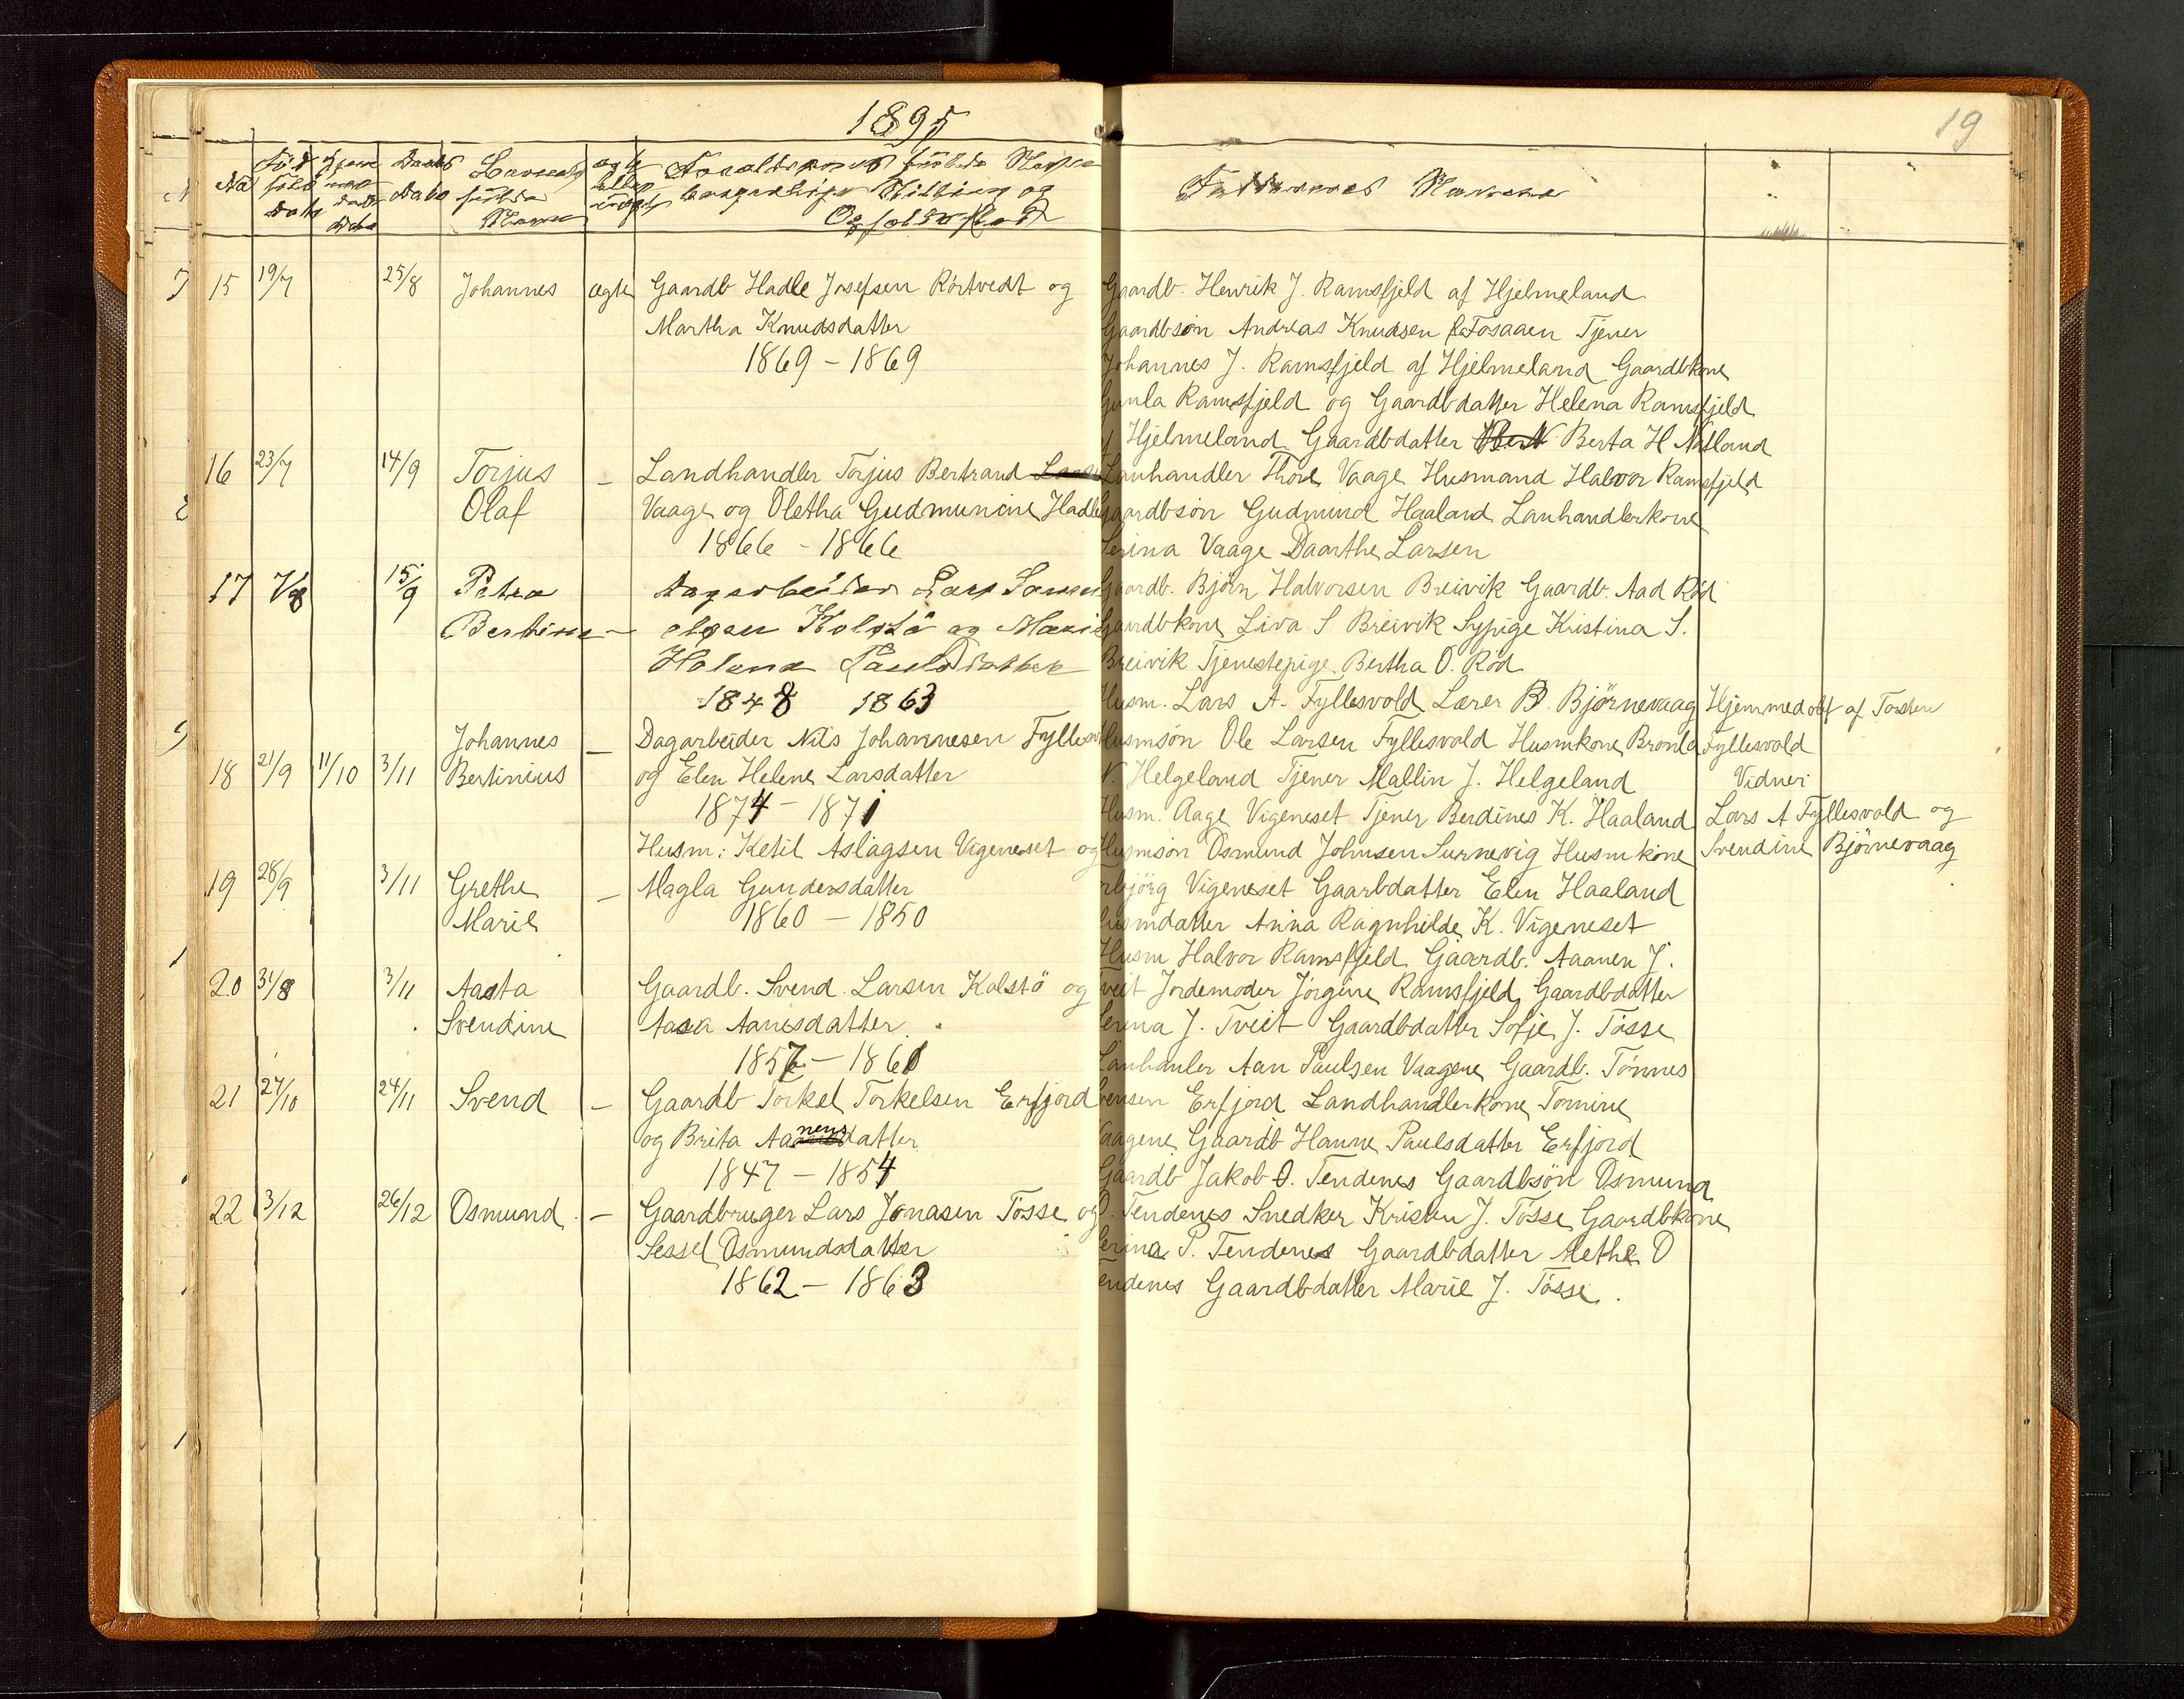 1895
19
No
Faddernes Navne
15 19/7 25/8 Johannes ægte Gaardb Hadle Josefsen Rörtvedt og
Martha Knudsdatter
1869 - 1869
Gaardb. Henrik J. Ramsfjeld af Hjelmeland
Gaardbsön Andreas Knudsen Fosaaen Tjener
Johannes J. Ramsfjeld af Hjelmeland Gaardbkone
Gunla Ramsfjeld og Gaardbdatter Helena Ramsfjeld
Hjelmeland Gaardbdatter Berta H Natland
16 23/7 14/9 Torjus — Landhandler Torjus Bertrand
Olaf Vaage og Oletha Gudmunine Hadle
1866 - 1866
Lanhandler Thore Vaage Husmand Halvor Ramsfjeld
Gaardbsön Gudmund Haaland Lanhandlerkone
Serina Vaage Daarthe Larsen
17 1/8 15/9 Petra Dagarbeider Lars
Bertine — Kolstö og
Helena Paulsdatter
1848 1863
Gaardb. Björn Halvorsen Breivik Gaardb. Aad Röd
Gaardbkone Liva S Breivik Sypige Kristina S.
Breivik Tjenestepige Bertha O. Röd
18 21/9 11/10 3/11 Johannes — Dagarbeider Nils Johannesen
Bertinius og Elen Helene Larsdatter
1874 - 1871
Husm. Lars A. Fyllesvold Lærer B. Björnevaag
Husmsön Ole Larsen Fyllesvold Husmkone Bronla
N. Helgeland Tjener Mallin J. Helgeland
Hjemmedöbt af Torsten
Fyllesvold
Vidner
Lars A Fyllesvold og
Svendine Björnevaag
19 28/9 3/11 Grethe Husm: Ketil Aslagsen Vigeneset og
Marie — Magla Gundersdatter
1860 - 1850
Husm. Aage Vigeneset Tjener Berdines K. Haaland
Husmsön Osmund Johnsen Surnevig Husmkone
Vigeneset Gaarbdatter Elen Haaland
Husmdatter Anna Ragnhilde K. Vigeneset
20 31/8 3/11 Aasta Gaardb. Svend Larsen Kolstö og
Svendine Aasa Aanesdatter
1857 - 1861
Husm Halvor Ramsfjeld Gaardb. Aanen J.
Tveit Jordemoder Jörgine Ramsfjeld Gaardbdatter
Serina J. Tveit Gaardbdatter Sofje J. Tösse
21 27/10 24/11 Svend — Gaardb Torkel Torkelsen Erfjord
og Brita Aanensdatter
1847 - 1854
Lanhanler Aan Paulsen Vaagene Gaardb. Tönnes
Erfjord Landhandlerkone Tomine
Vaagene Gaardb Hanne Paulsdatter Erfjord
22 3/12 26/12 Osmund — Gaardbruger Lars Jonasen Tösse og
Sessel Osmundsdatter
1862 - 1863
Gaardb Jakob O. Tendenes Gaardbsön Osmund
O. Tendenes Snedker Kristen J. Tösse Gaardbkone
Serina P. Tendenes Gaardbdatter Methe O
Tendenes Gaardbdatter Marie J. Tösse.